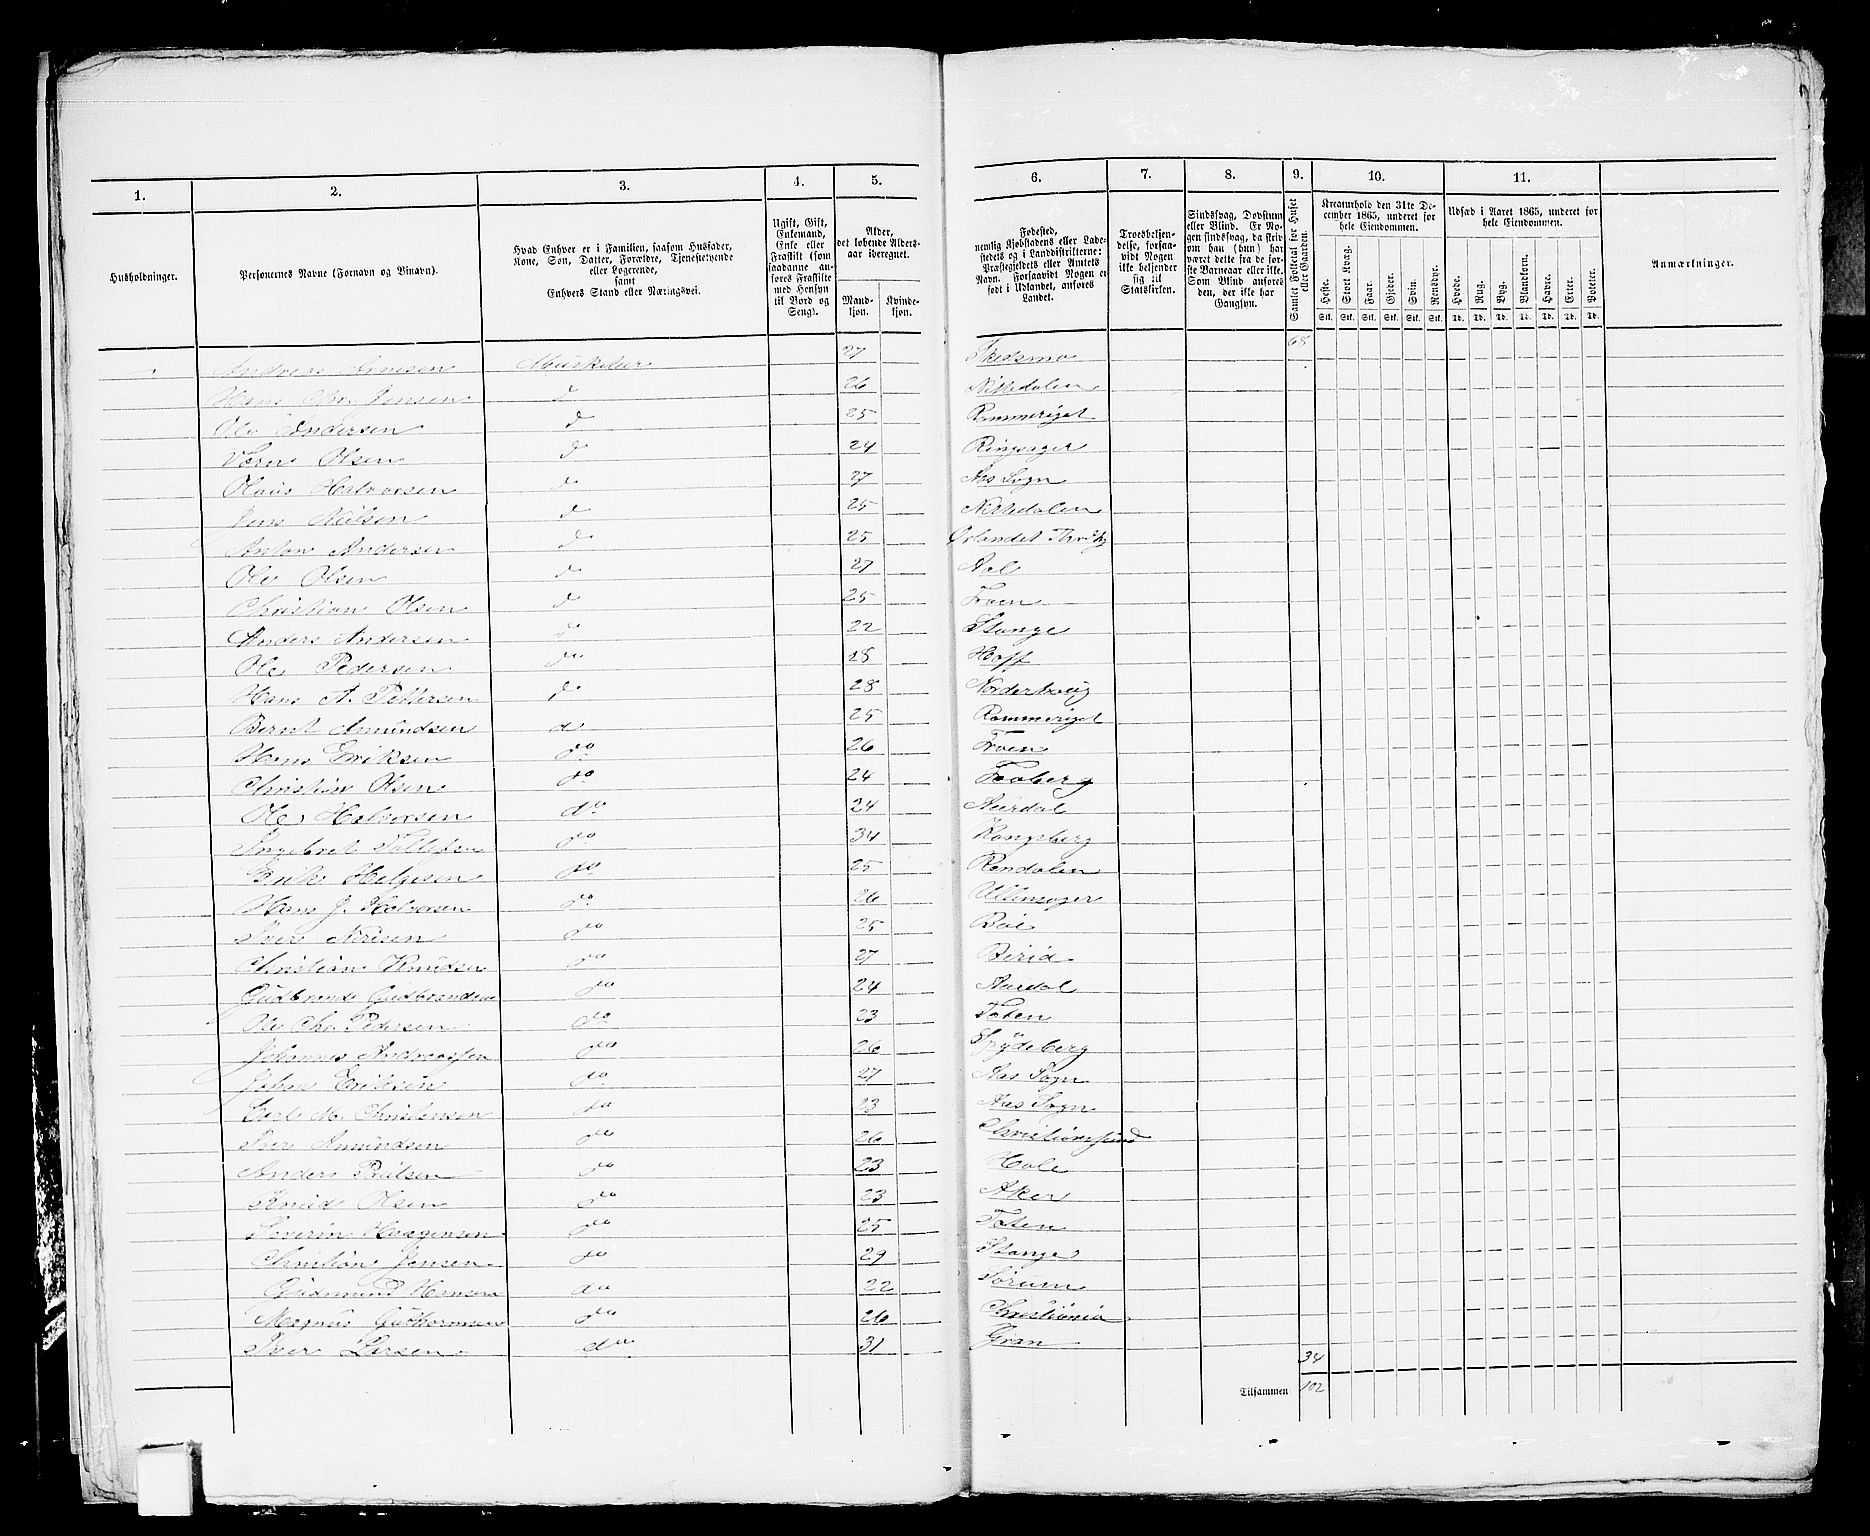 1. 2. 3. 4. 5. 6. 7. 8. 9. 10. 11.
Husholdninger.
Personernes Navne (Fornavn og Tilnavn).
Hvad Enhver er i Familien, saasom Husfader, Kone, Søn, Datter, Forældre, Tjenestetyende eller Logerende, samt Enhvers Stand eller Næringsvei.
Ugift, Gift, Enkemand, Enke eller Fraskilt (som saadanne anføres Fraskilte med Hensyn til Bord og Seng).
Alder, det løbende Alders-aar iberegnet.
Mand-kjøn. Kvinde-kjøn.
Fødested, nemlig Kjøbstadens eller Ladestedets og i Landdistrikterne: Præstegjeldets eller Amtets Navn. Forsaavidt Nogen er født i Udlandet, anføres Landet.
Troesbekjendelse, forsaavidt Nogen ikke bekjender sig til Statskirken.
Sindssvag, Døvstum eller Blind. Er Nogen sindssvag, da skrives om han (hun) har været dette fra de første Barneaar eller ikke. Som Blind anføres den, der ikke har Gangsyn.
Samlet Folketal for Huset eller Gaarden.
Kreaturhold den 31te December 1865, underet for hele Eiendommen.
Heste. Stort Kvæg. Faar. Gjeder. Svin. Rensdyr.
Stk. Stk. Stk. Stk. Stk. Stk.
Udsæd i Aaret 1865, underet for hele Eiendommen.
Hvede. Rug. Byg. Blandkorn. Havre. Erter. Poteter.
Td. Td. Td. Td. Td. Td. Td.
Anmærkninger.
68
Andreas Arnesen Musketeer 27 Skedsmo
Hans Chr. Jensen d 26 Nittedalen
Ole Andersen d 25 Rommeriget
Olsen d 24 Ringsager
Olaus Halvorsen d 27 Aas Sogn
Jens Nielsen d 25 Nittedalen
Anton Andersen d 25 Ørlandet
Ole Olsen d 27 Aal
Christian Olsen d 25 Froen
Anders Andersen d 22 Stange
Ole Pedersen do 28 Hoff
Hans A. Pettersen d 28 Norderhoug
Bernt Amundsen d 25 Rommeriget
Hans Eriksen do 26 Froen
Christian Olsen do 24 Faaberg
Ole Halvorsen do 24 Aurdal
Ingebret Tollefsen do 34 Kongsberg
Erik Helgesen do 25 Rendalen
Hans J. Halvorsen do 26 Ullensager
Iver do 25
Christian Knudsen do 27 Birid
Gudbrand Gudbrandsen do 24 Aurdal
Ole Chr. Pedersen do 23 Toten
Johannes Andreassen do 26 Spydeberg
Johan Eriksen do 27 Aas Sogn
Carl M. Christensen do 23 Aas Sogn
Iver Amundsen do 26 Christiansund
Anders Paulsen do 23 Hole
Knud Olsen do 23 Aker
Severin Haagensen do 25 Toten
Christian Jensen do 29 Stange
Gudmund Hansen do 22 Sørum
Magnus Guthormsen do 26 Christiania
Iver Larsen do 31 Gran
34
Tilsammen 102